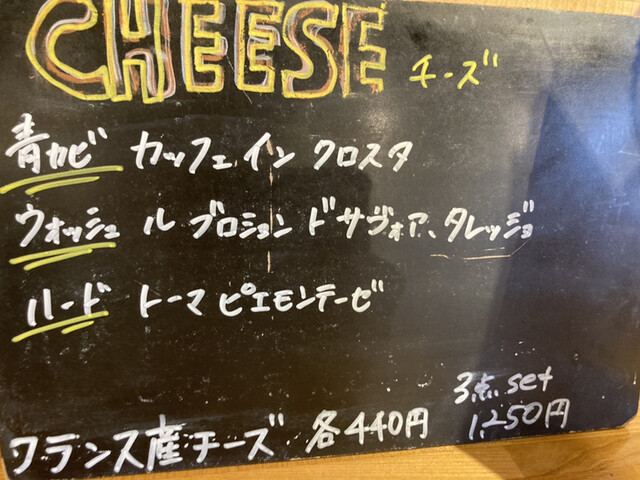 CHEESE チーズ
青カビ カッフェ イン クロスタ
ウォッシュ ル ブロション ド サヴォア、タレッジョ
ハード トーマ ピエモンテーゼ
3点set
フランス産チーズ 各440円 1,250円